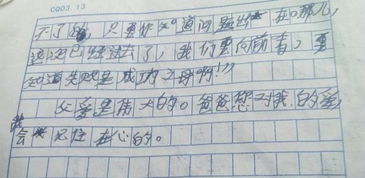 C903 13
不了的，只要你知道问题出在哪儿，
这还已经过去了，我们要向前看，要
知道失败是成功之母啊！”
父爱是伟大的。爸爸您对我的爱，
我会记住在心的。